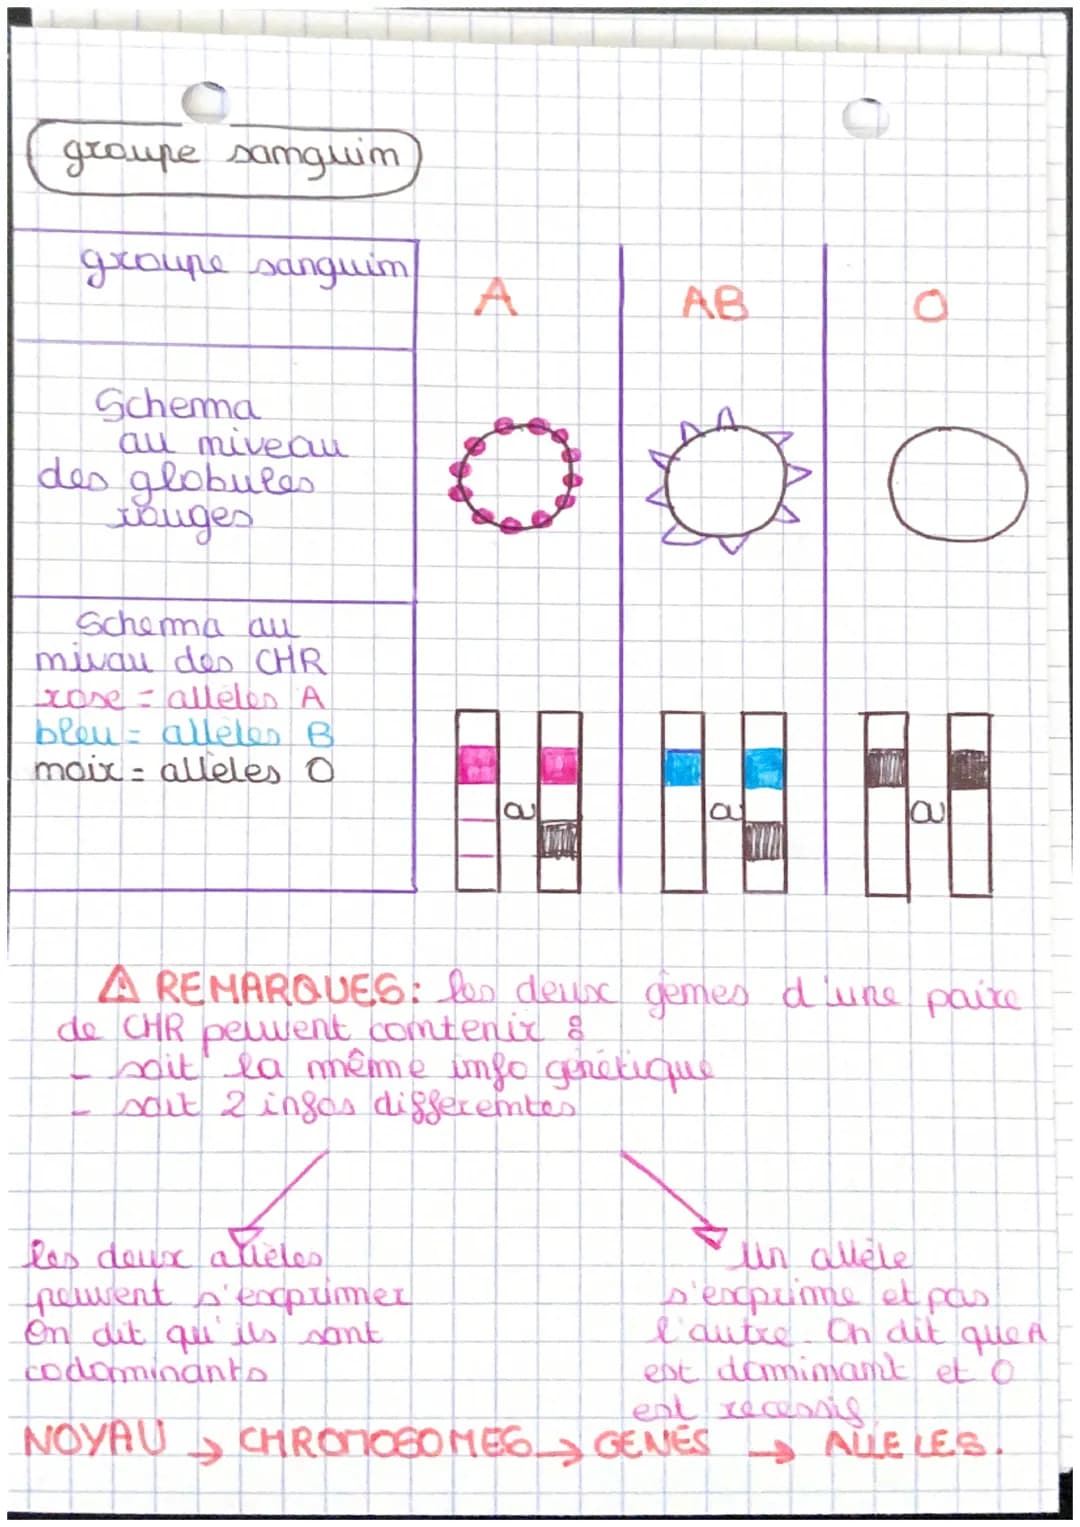 groupe sanguin
groupe sanguin
A
AB
O
Schema
au niveau
des globules
rouges
Schema au
nivau des CHR
rose = allèles A
bleu = allèles B
noir = allèles O
a
a
a
⚠ REMARQUES: les deux gènes d'une paire
de CHR peuvent contenir :
- soit la même info génétique
- soit 2 infos differentes
les deux allèles
peuvent s'exprimer
On dit qu'ils sont
codominants
Un allèle
s'exprime et pas
l'autre. On dit que A
est dominant et O
est recessif
NOYAU → CHROMOSOMES → GENES → ALLELES.